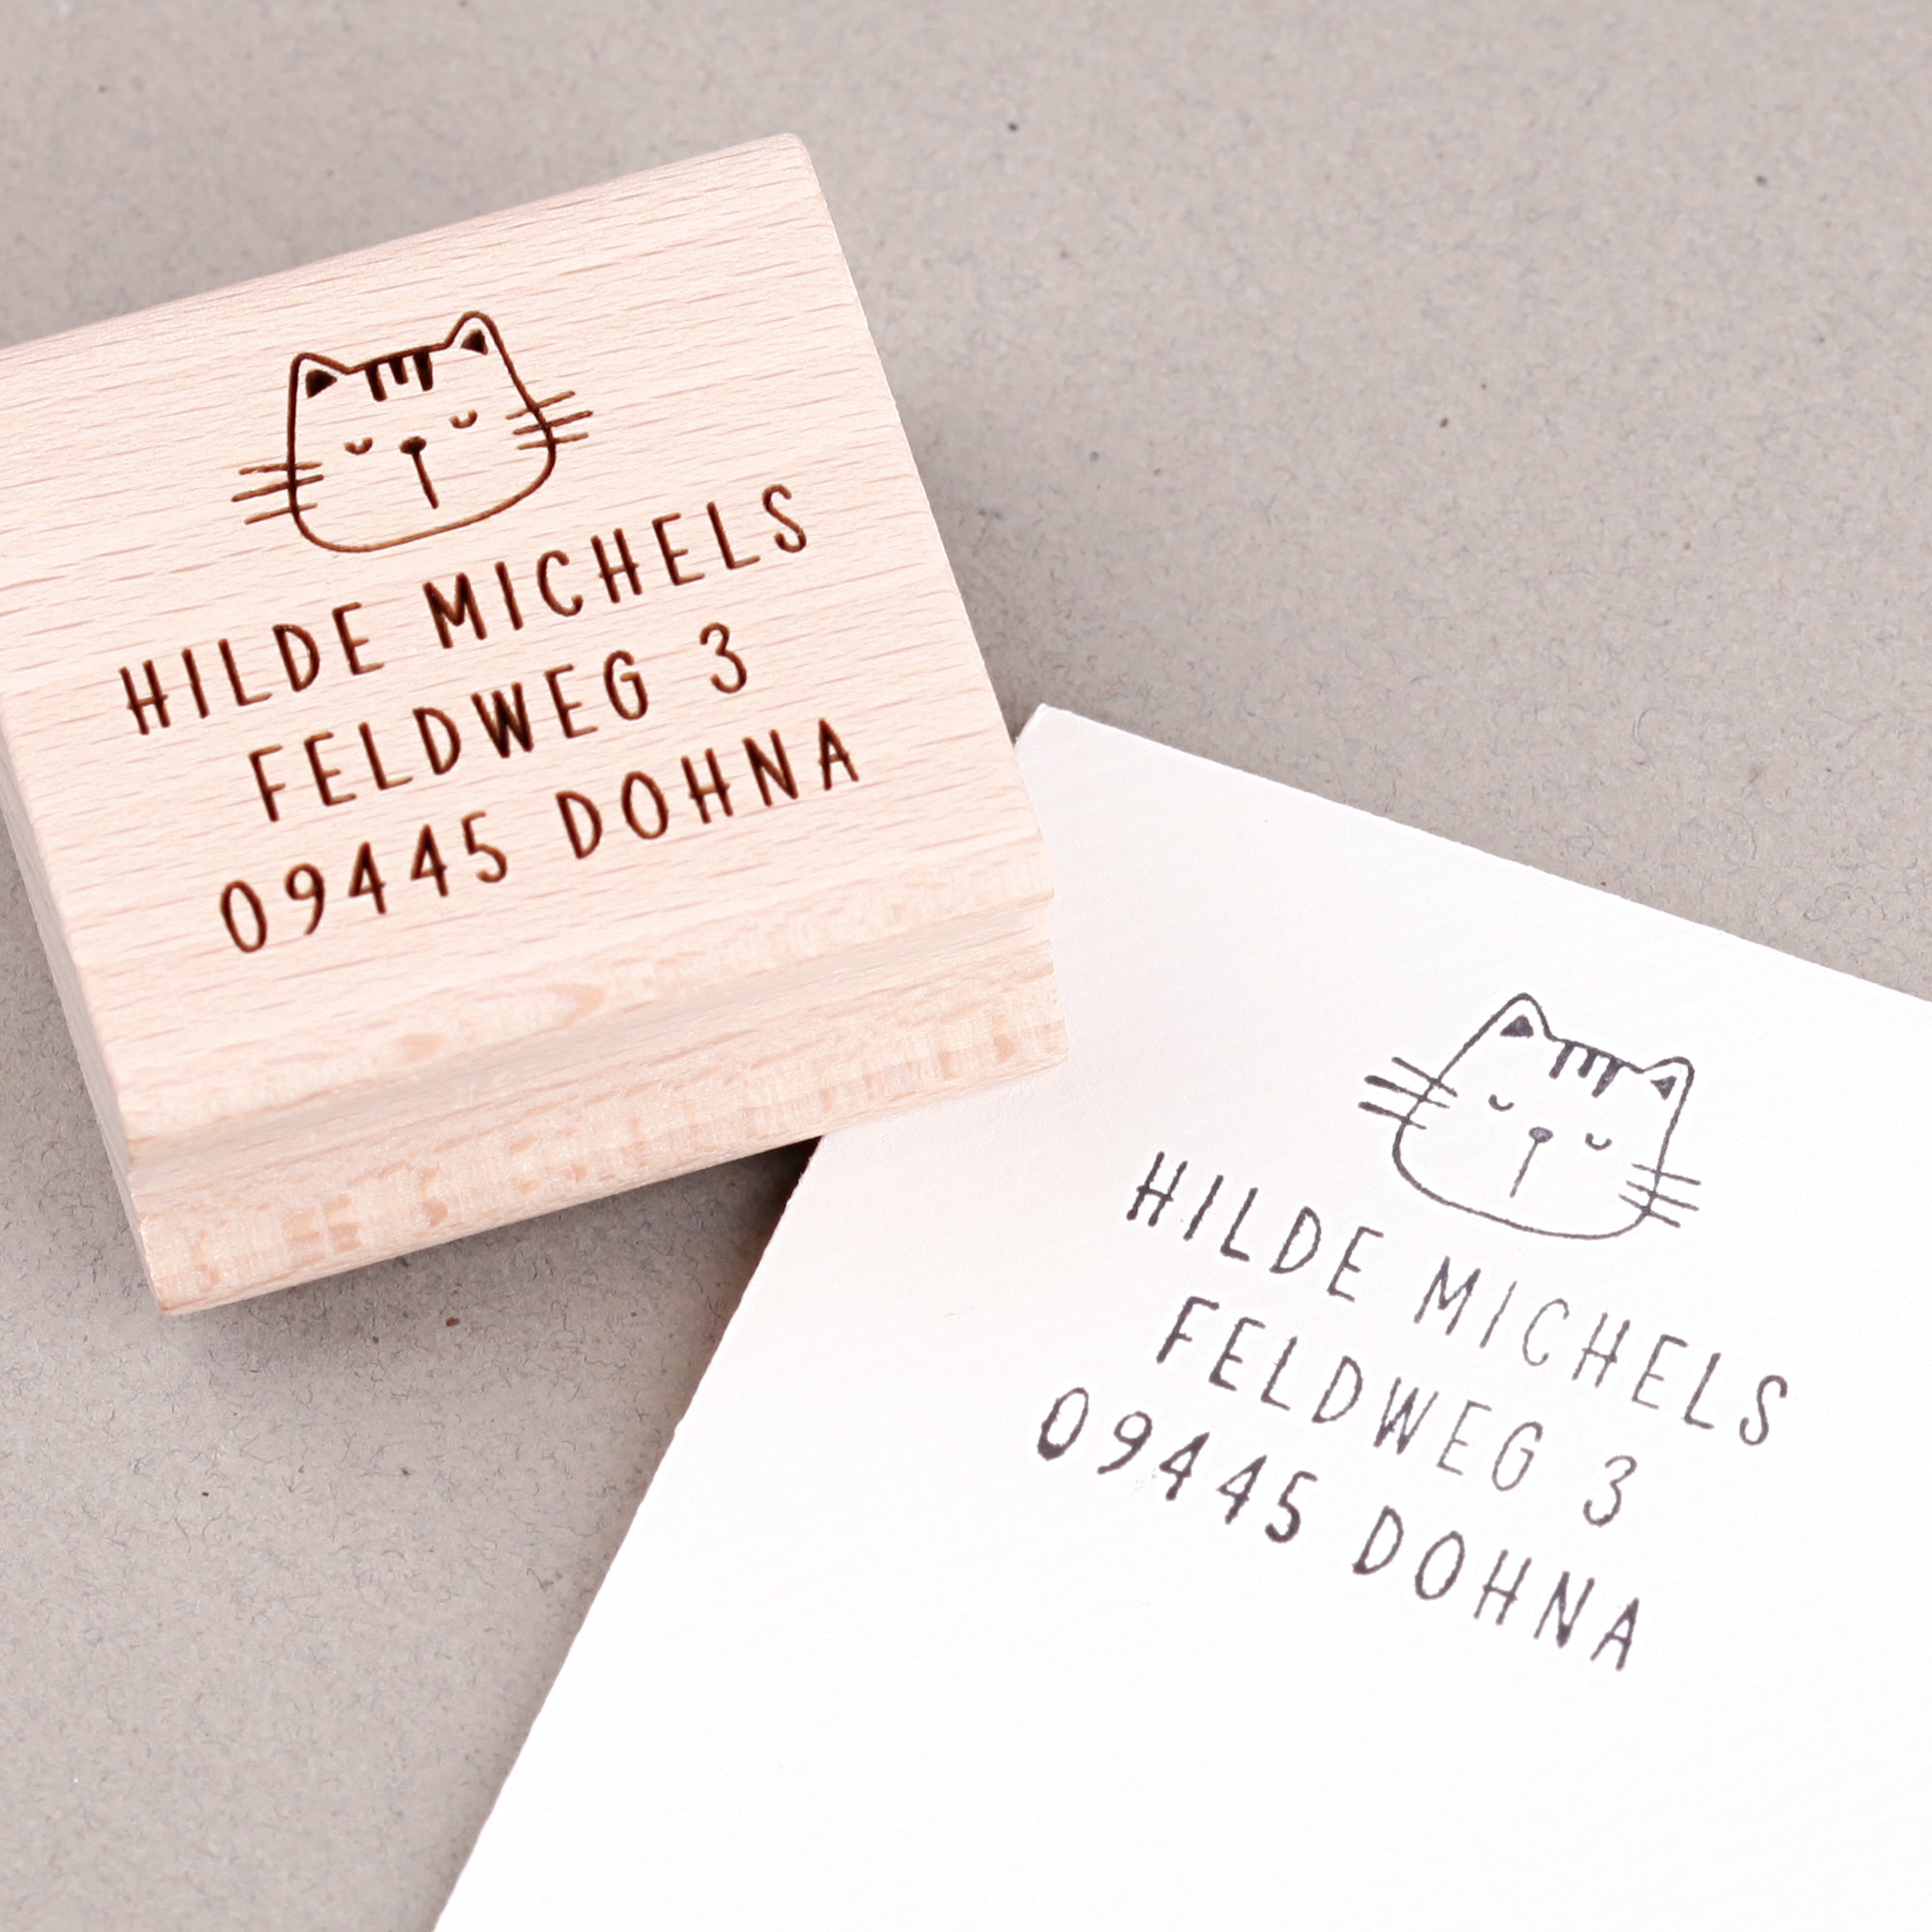 HILDE MICHELS
FELDWEG 3
09445 DOHNA
HILDE MICHELS
FELDWEG 3
09445 DOHNA